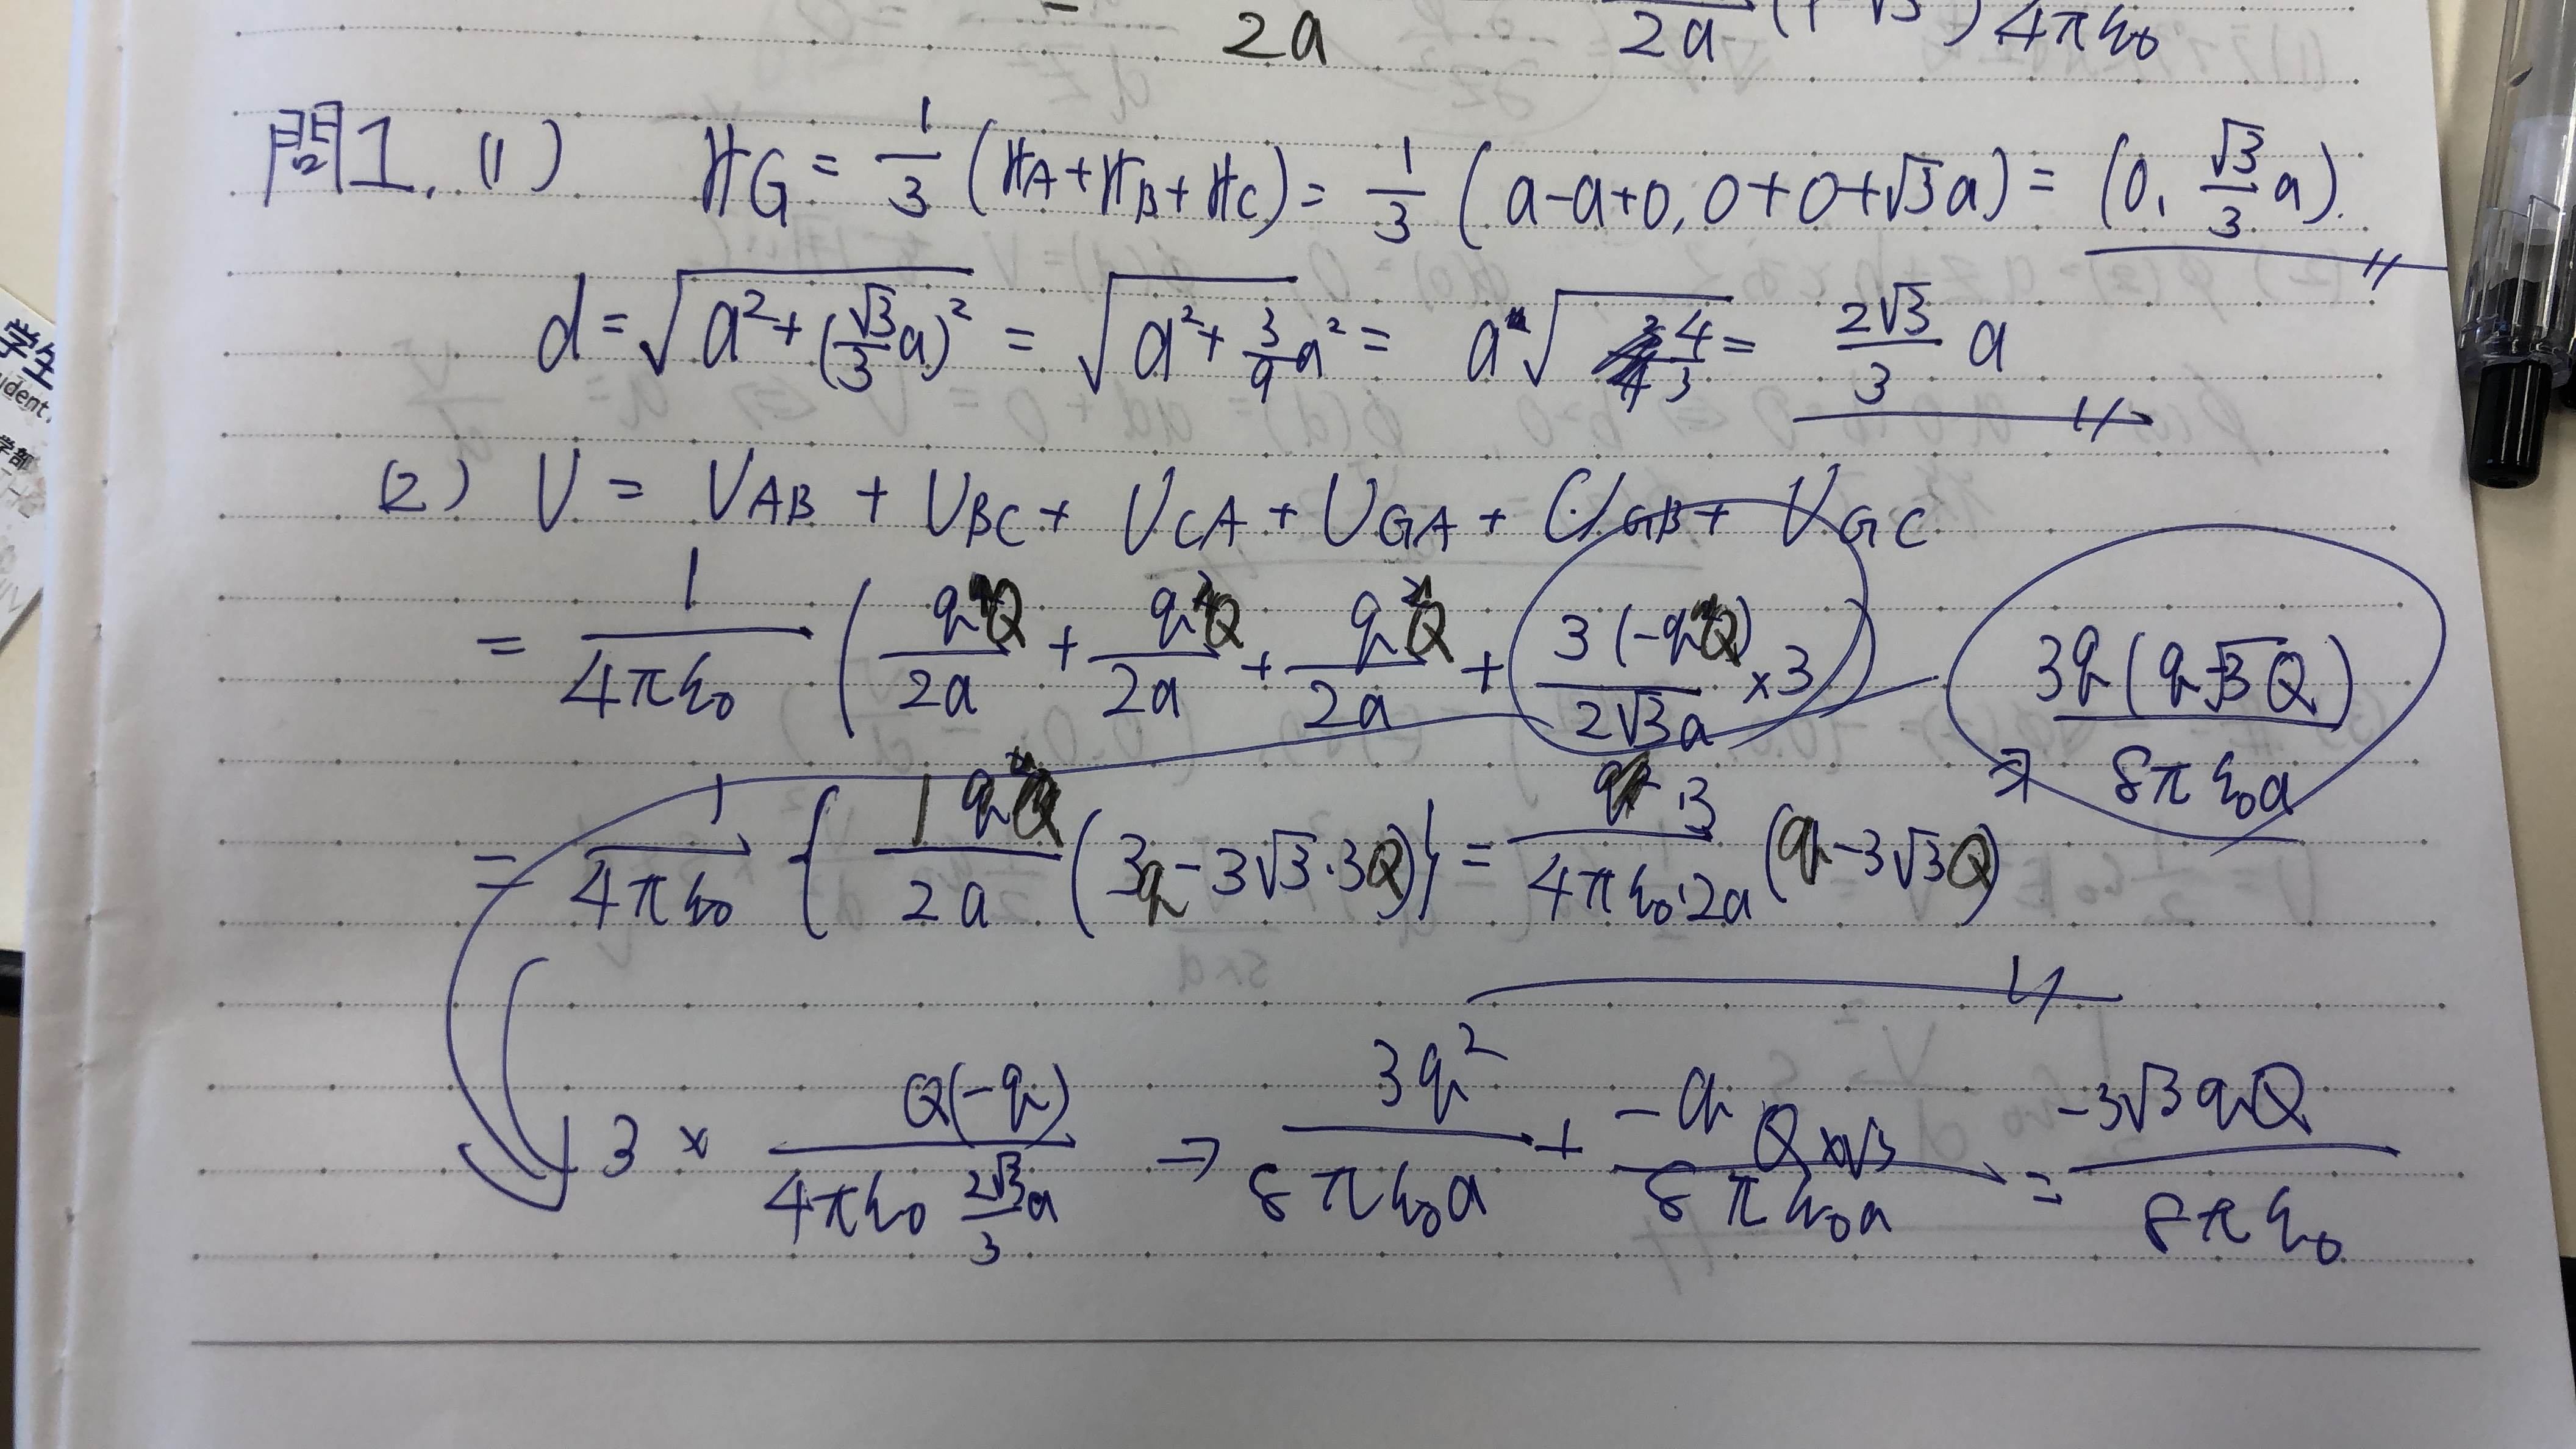 2a 2a 4πε₀
問1. (1) r_G = 1/3 (r_A + r_B + r_C) = 1/3 (a-a+0, 0+0+√3a) = (0, √3/3 a).
d = √(a² + (√3/3 a)²) = √(a² + 3/9 a²) = a√(4/3) = 2√3/3 a
(2) U = U_AB + U_BC + U_CA + U_GA + U_GB + U_GC
= 1/4πε₀ ( q²/2a + q²/2a + q²/2a + 3(-qQ)/2√3a ×3 ) 3q(q-√3Q)/8πε₀a
= 1/4πε₀ { 1q/2a (3q - 3√3·3Q) } = q·3/4πε₀·2a (q-3√3Q)
3 × Q(-q)/4πε₀ 2√3/3 a → 3q²/8πε₀a + -qQ×√3/8πε₀a = -3√3qQ/8πε₀
学生
udent
学部